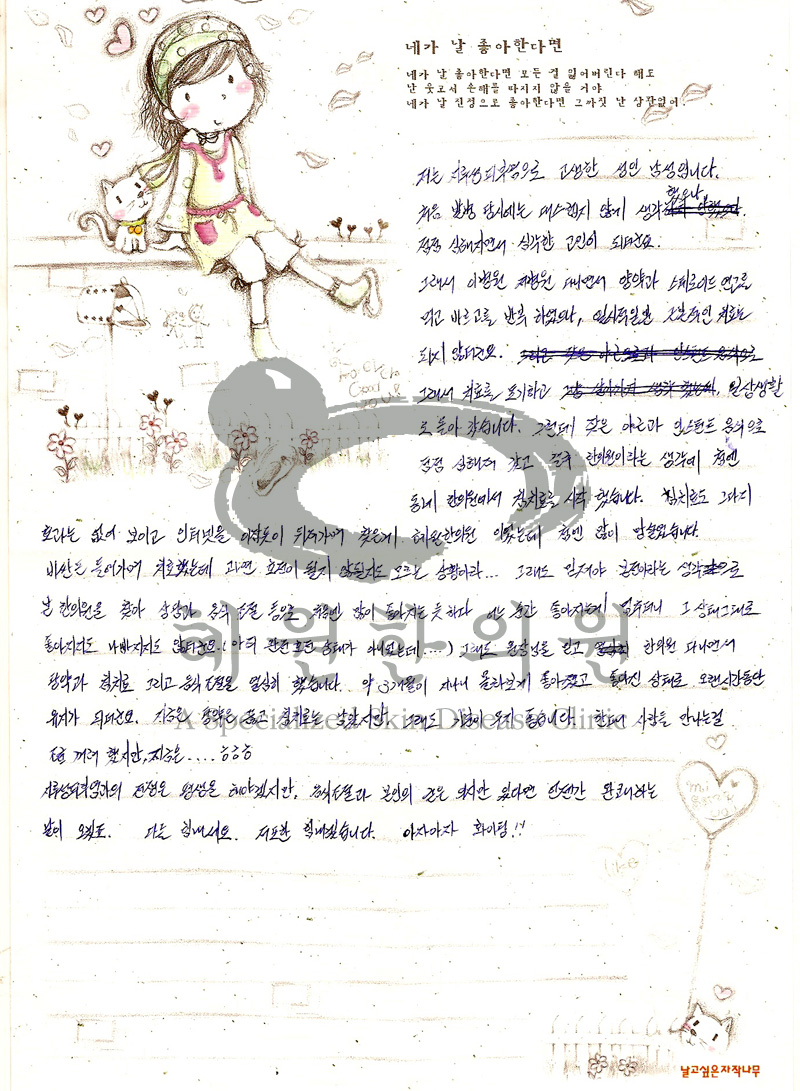 네가 날 좋아한다면
네가 날 좋아한다면 모든 걸 잃어버린다 해도
난 웃고서 손해를 따지지 않을 거야
네가 날 진정으로 좋아한다면 그까짓 난 상관없어.
저는 지루성피부염으로 고생한 성인 남성입니다.
처음 발병 당시에는 대스럽지 않게 생각했으나,
점점 심해지면서 심각한 고민이 되더군요.
그래서 이병원 저병원 다니면서 양약과 스테로이드 연고를
먹고 바르고를 반복 하였으나, 일시적일뿐 근본적인 치료는
되지 않더군요.
그래서 치료를 포기하고 일상생활
로 돌아 갔습니다. 그런데 잦은 야근과 인스턴트 음식으로
점점 심해져 갔고 결국 한의원이라는 생각에 첨엔
동네 한의원에서 침치료를 시작 했습니다. 침치료도 그다지
효과는 없어 보이고 인터넷을 이잡듯이 뒤져가며 찾은게 혜원한의원 이었는데 첨엔 많이 망설였습니다.
비싼돈 들여가며 치료했는데 과연 호전이 될지 않될지도 모르는 상황이라... 그래도 밑져야 본전이라는 생각으로
본 한의원을 찾아 상담과 음식 조절 등으로 처음엔 많이 좋아지는 듯 하다 어느 순간 좋아지는게 멈추더니 그 상태 그대로
좋아지지도 나빠지지도 않더군요.(아직 완전호전 상태가 아니었는데....) 그래도 원장님을 믿고 한의원 다니면서
한약과 침치료 그리고 음식조절을 열심히 했습니다. 약 3개월이 지나니 몰라보게 좋아졌고 좋아진 상태로 오랜시간동안
유지가 되더군요. 지금은 한약을 끊고 침치료만 받았지만 그래도 기분이 무지 좋습니다. 한때는 사람들 만나는걸
다 꺼려 했지만, 지금은..... ㅎㅎㅎ
지루성피부염과의 전쟁은 평생을 해야겠지만, 음식조절과 본인의 굳은 의지만 있다면 언젠간 완쾌라는
날이 오겠죠. 다들 힘내세요. 저또한 힘내겠습니다. 아자아자 화이팅!!
혜원한의원
A Specialized Skin Disease Clinic
Like
날고싶은자작나무